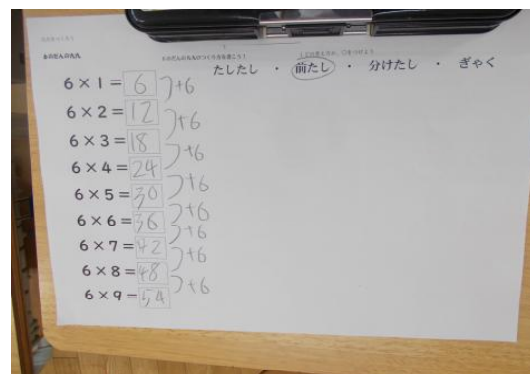 6のだんの九九
たしたし ・ 前たし ・ 分けたし ・ ぎゃく
6×1=6
+6
6×2=12
+6
6×3=18
+6
6×4=24
+6
6×5=30
+6
6×6=36
+6
6×7=42
+6
6×8=48
+6
6×9=54